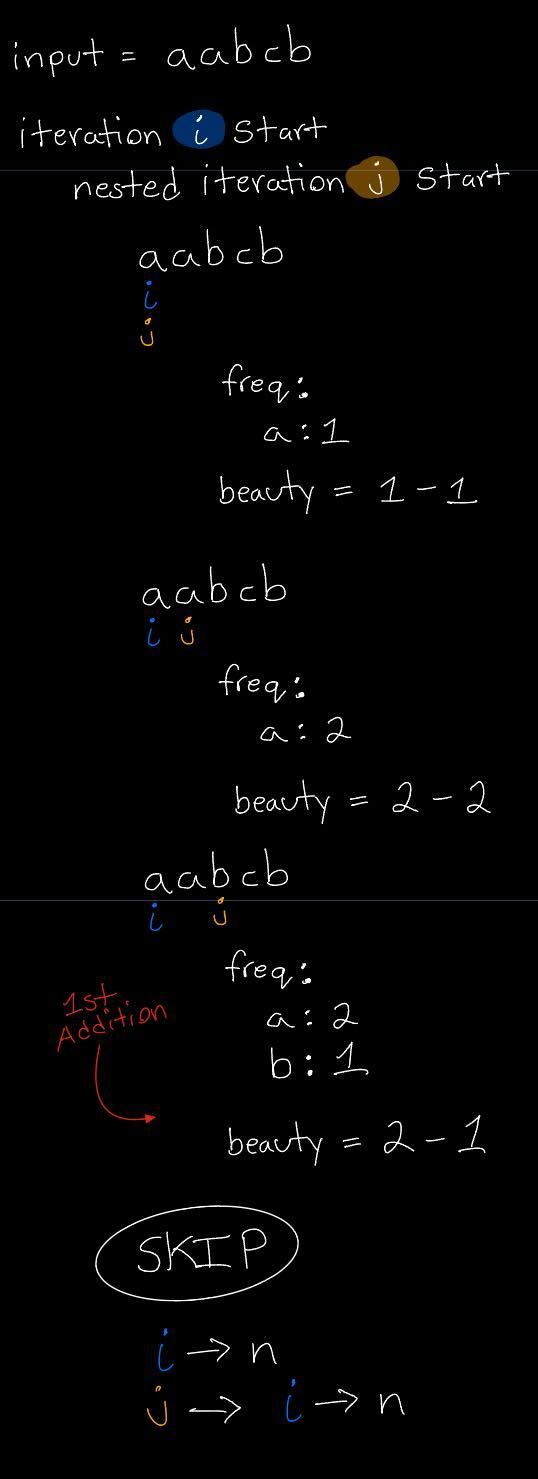 input = aabcb
iteration i start
nested iteration j start
aabcb
i
j
freq:
a : 1
beauty = 1 - 1
aabcb
i j
freq:
a : 2
beauty = 2 - 2
aabcb
i j
freq:
a : 2
b : 1
1st
Addition
beauty = 2 - 1
SKIP
i → n
j → i → n